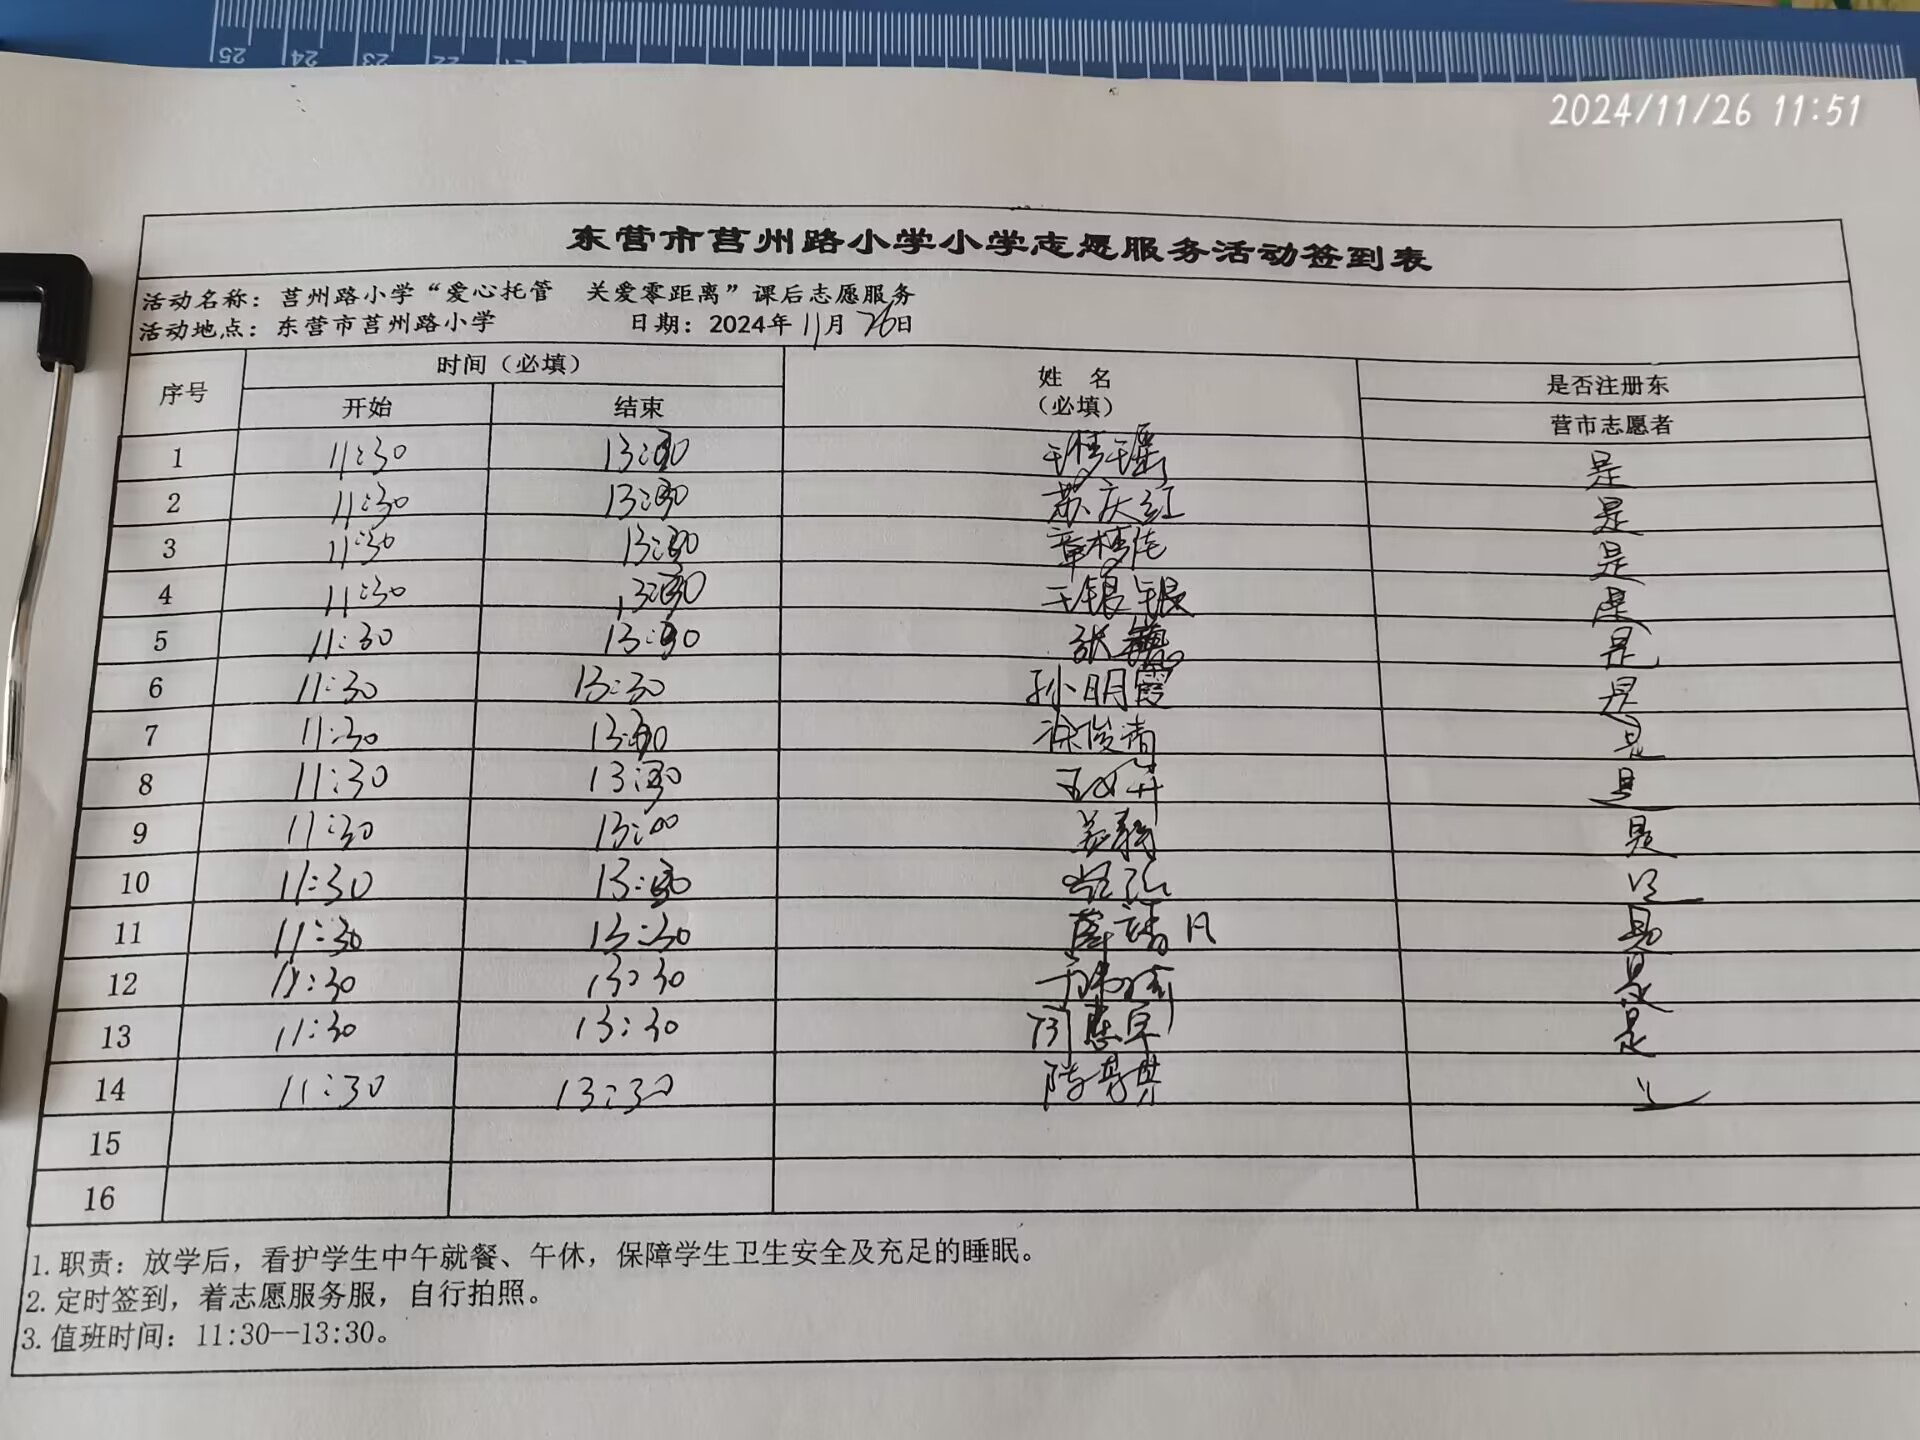 25 24 23 22 21
2024/11/26 11:51
东营市莒州路小学小学志愿服务活动签到表
活动名称：莒州路小学“爱心托管 关爱零距离”课后志愿服务
活动地点：东营市莒州路小学 日期：2024年11月26日
序号 时间（必填） 姓 名 是否注册东
开始 结束 （必填） 营市志愿者
1 11:30 13:30 王梦瑶 是
2 11:30 13:30 苏庆红 是
3 11:30 13:30 章梦佳 是
4 11:30 13:30 王银银 是
5 11:30 13:30 张 是
6 11:30 13:30 孙明霞 是
7 11:30 13:30 徐俊清 是
8 11:30 13:30 是
9 11:30 13:00 是
10 11:30 13:30 是
11 11:30 13:30 是
12 11:30 13:30 是
13 11:30 13:30 是
14 11:30 13:30
15
16
1.职责：放学后，看护学生中午就餐、午休，保障学生卫生安全及充足的睡眠。
2.定时签到，着志愿服务服，自行拍照。
3.值班时间：11:30--13:30。